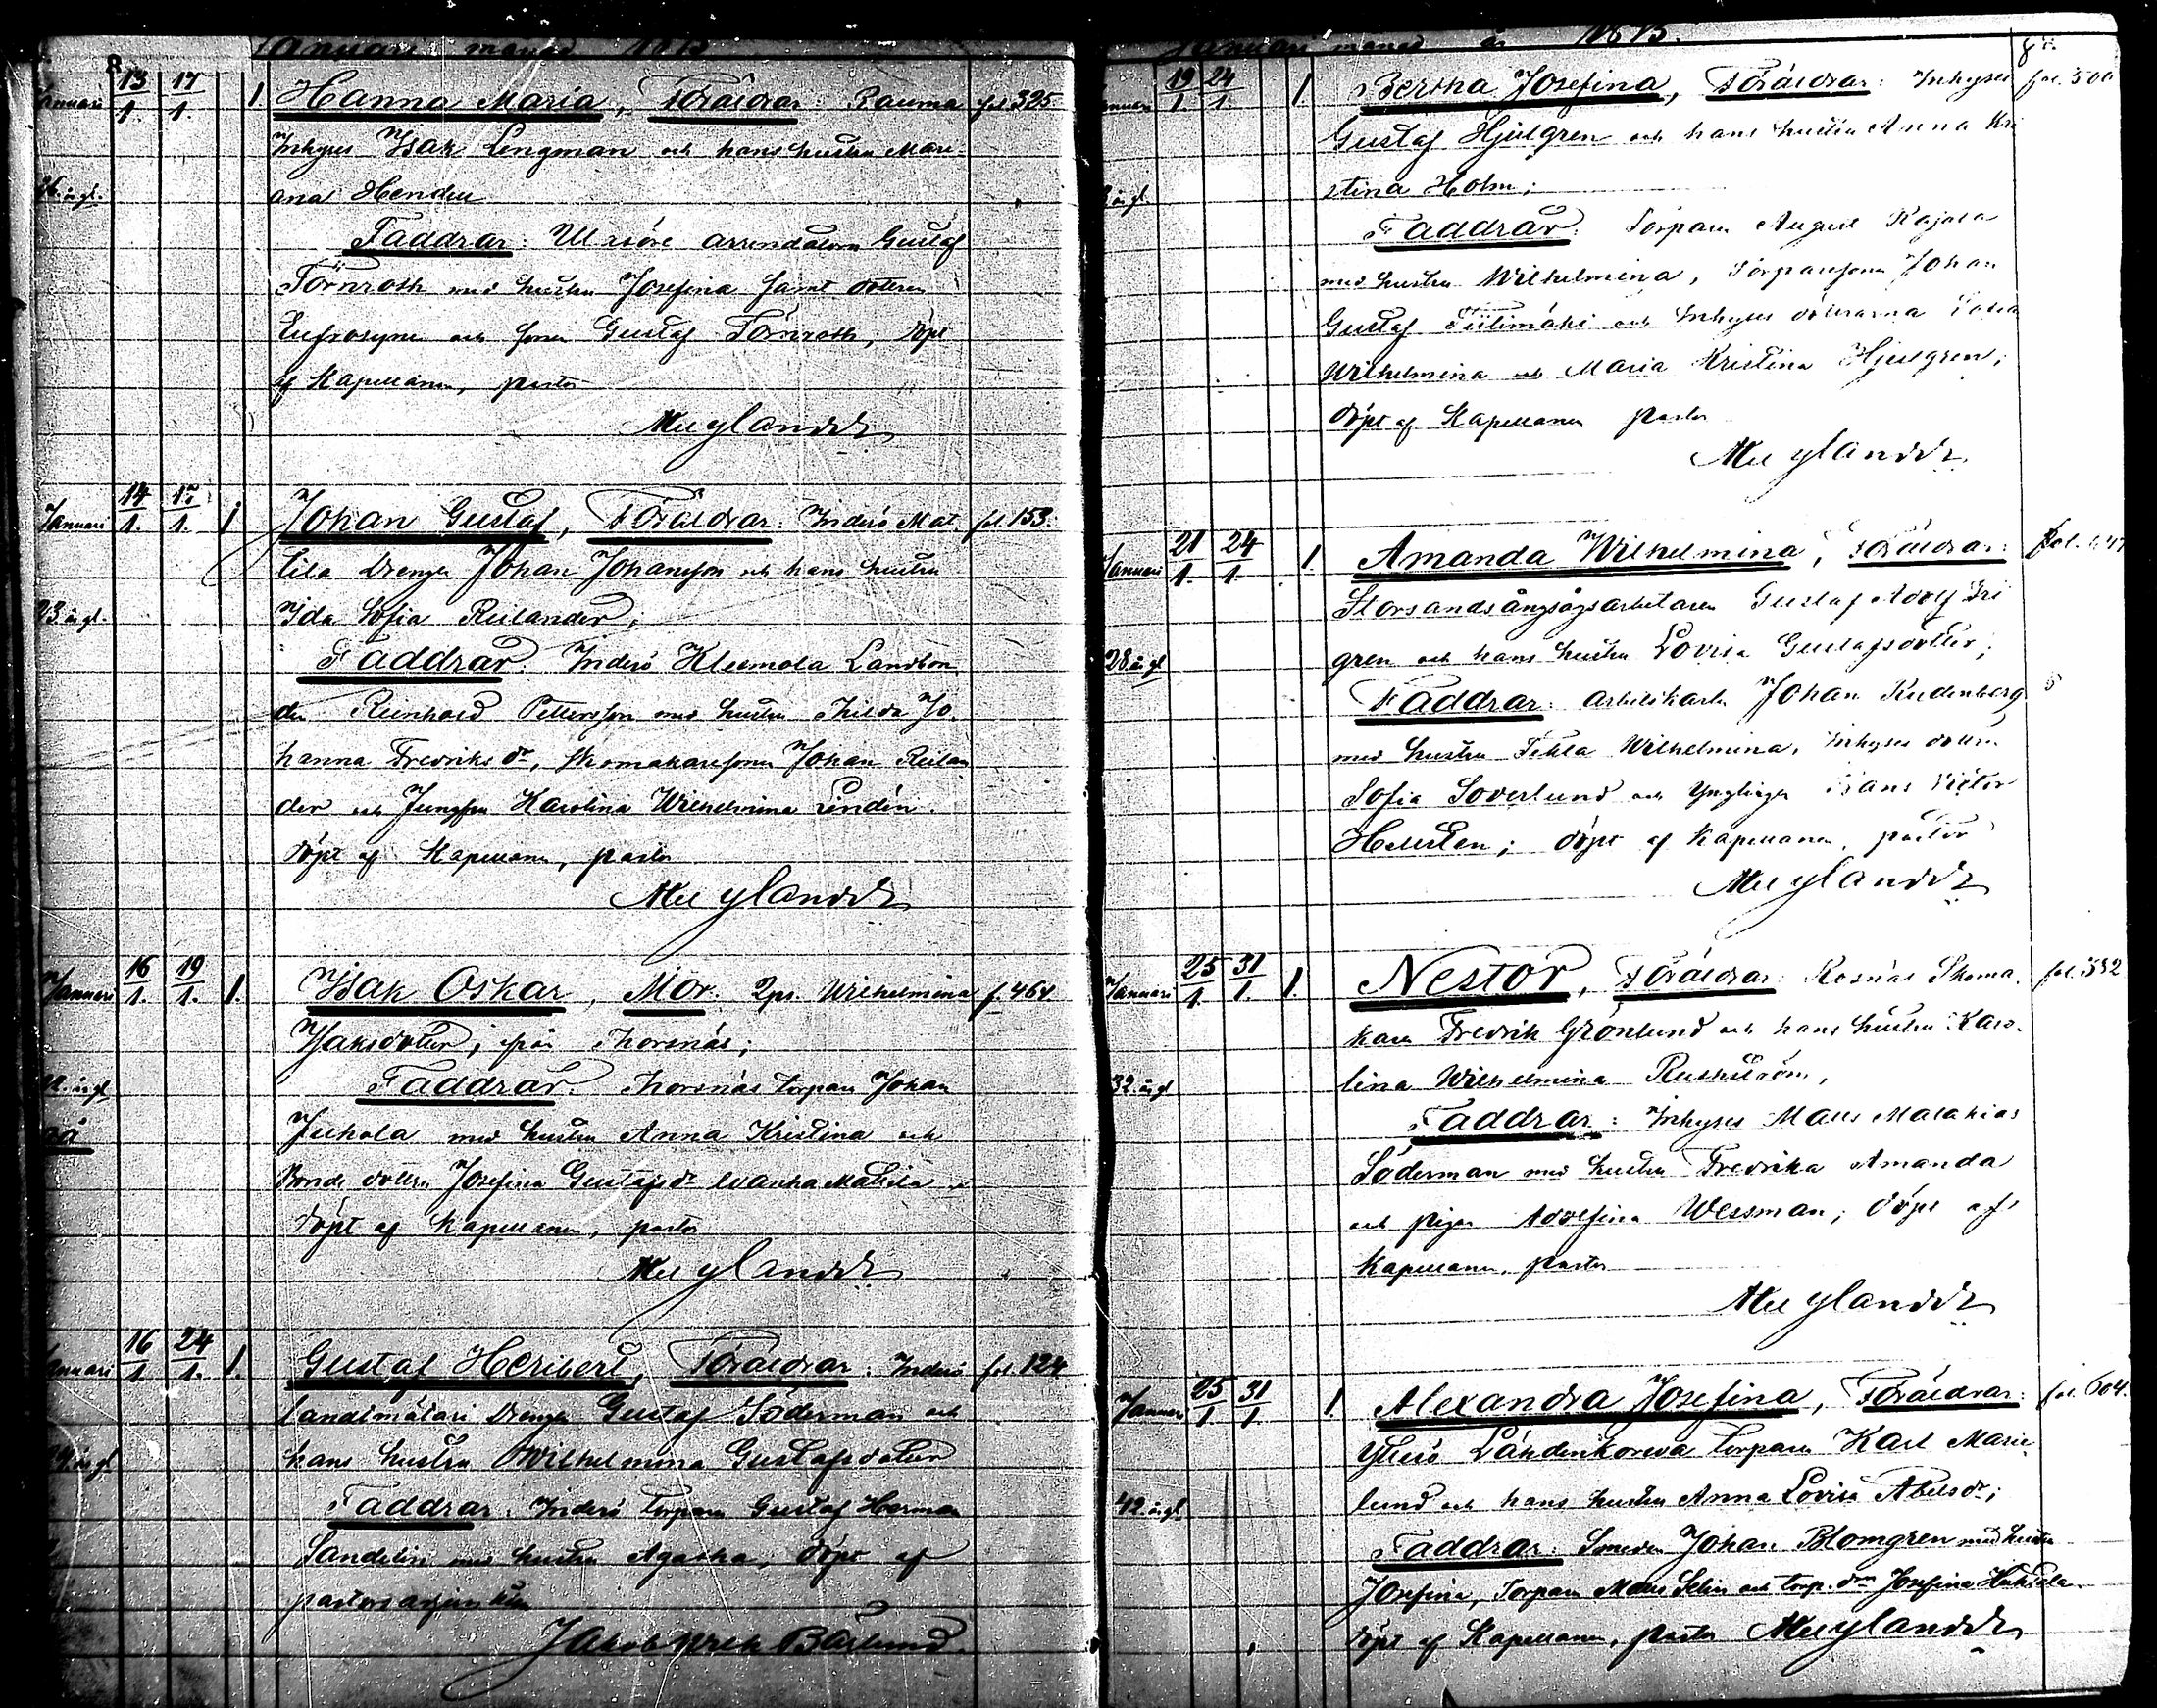 Januari månad 1875
8.
Januari 13/1. 17/1. 1 Hanna Maria, Föräldrar: Rauma fol 325.
Inhyses Isak Lengman och hans hustru Mari-
36. år gl. ana Hendru
Faddrar: Arrendatorn Gustaf
Törnroth med hustru Josefina samt dotteren
Eufrosyne och sonen Gustaf Törnroth; döpt
af Kapellanen, pastor
Januari 14/1. 17/1. 1 Johan Gustaf, Föräldrar: Inderö Mat- fol. 153.
tila Drengen Johan Johansson och hans hustru
23 år gl. Ida Sofia Reilander,
Faddrar: Inderö Kleemola Landbon-
den Reinhold Pettersson med hustru Thilda Jo-
hanna Fredriks dr, Skomakaresonen Johan Reilan
der och Jungfrun Karolina Wilhelmina Lindén.
döpt af Kapellanen, pastor
Januari 16/1. 19/1. 1. Isak Oskar, Mor: Qps. Wilhelmina f. 464
Isaksdotter, från Thorsnäs;
22. år gl. Faddrar: Thorsnäs torparen Johan
Juhola med hustru Anna Kristina och
Bonde dottern Josefina Gustafsdr Wanha Mattila
döpt af Kapellanen, pastor
Januari 16/1. 24/1. 1. Gustaf Heribert, Föräldrar: Inderö fol. 124
landtmätari Drengen Gustaf Söderman och
hans hustru Wilhelmina Gustafsdotter
Faddrar: Inderö torparen Gustaf Herman
Sandelin med hustru Agatha; döpt af
pastorsadjunkten
Jakob Barlund.
Januari månad år 1875.
Januari 19/1. 24/1. 1. Bertha Josefina, Föräldrar: Inhyses fol. 500
Gustaf Hjulgren och hans hustru Anna Kri
stina Holm;
Faddrar: Torparen August Rajala
med hustru Wilhelmina, Torparesonen Johan
Gustaf Tiilimäki och Inhyses döttrarna
Wilhelmina och Maria Kristina Hjulgren;
döpt af Kapellanen pastor
Januari 21/1. 24/1. 1. Amanda Wilhelmina, Föräldrar: fol.
Storsandsångsågsarbetaren Gustaf Adolf Fri
28 år gl gren och hans hustru Lovisa Gustafsdotter;
Faddrar: arbetskarlen Johan Rudenberg
med hustru Tekla Wilhelmina, Inhyses dottern
Sofia Soverlund och Ynglingen Frans Victor
Hellsten; döpt af Kapellanen, pastor
Januari 25/1. 31/1. 1. Nestor, Föräldrar: Rosnäs Skoma- fol. 532
karen Fredrik Grönlund och hans hustru Karo-
32. år gl. lina Wilhelmina
Faddrar: Inhyses Matts Malakias
Söderman med hustru Fredrika Amanda
och pigan Adolfina Wessman; döpt af
Kapellanen, pastor
Januari 25/1 31/1 1. Alexandra Josefina, Föräldrar: fol. 604.
Lähdenkorwa torparen Karl Marie-
42. år gl. lund och hans hustru Anna Lovisa Abelsdr;
Faddrar: Smeden Johan Blomgren med hustru
Josefina, Torparen Matts Selin och torp. drn Josefina
döpt af Kapellanen, pastor